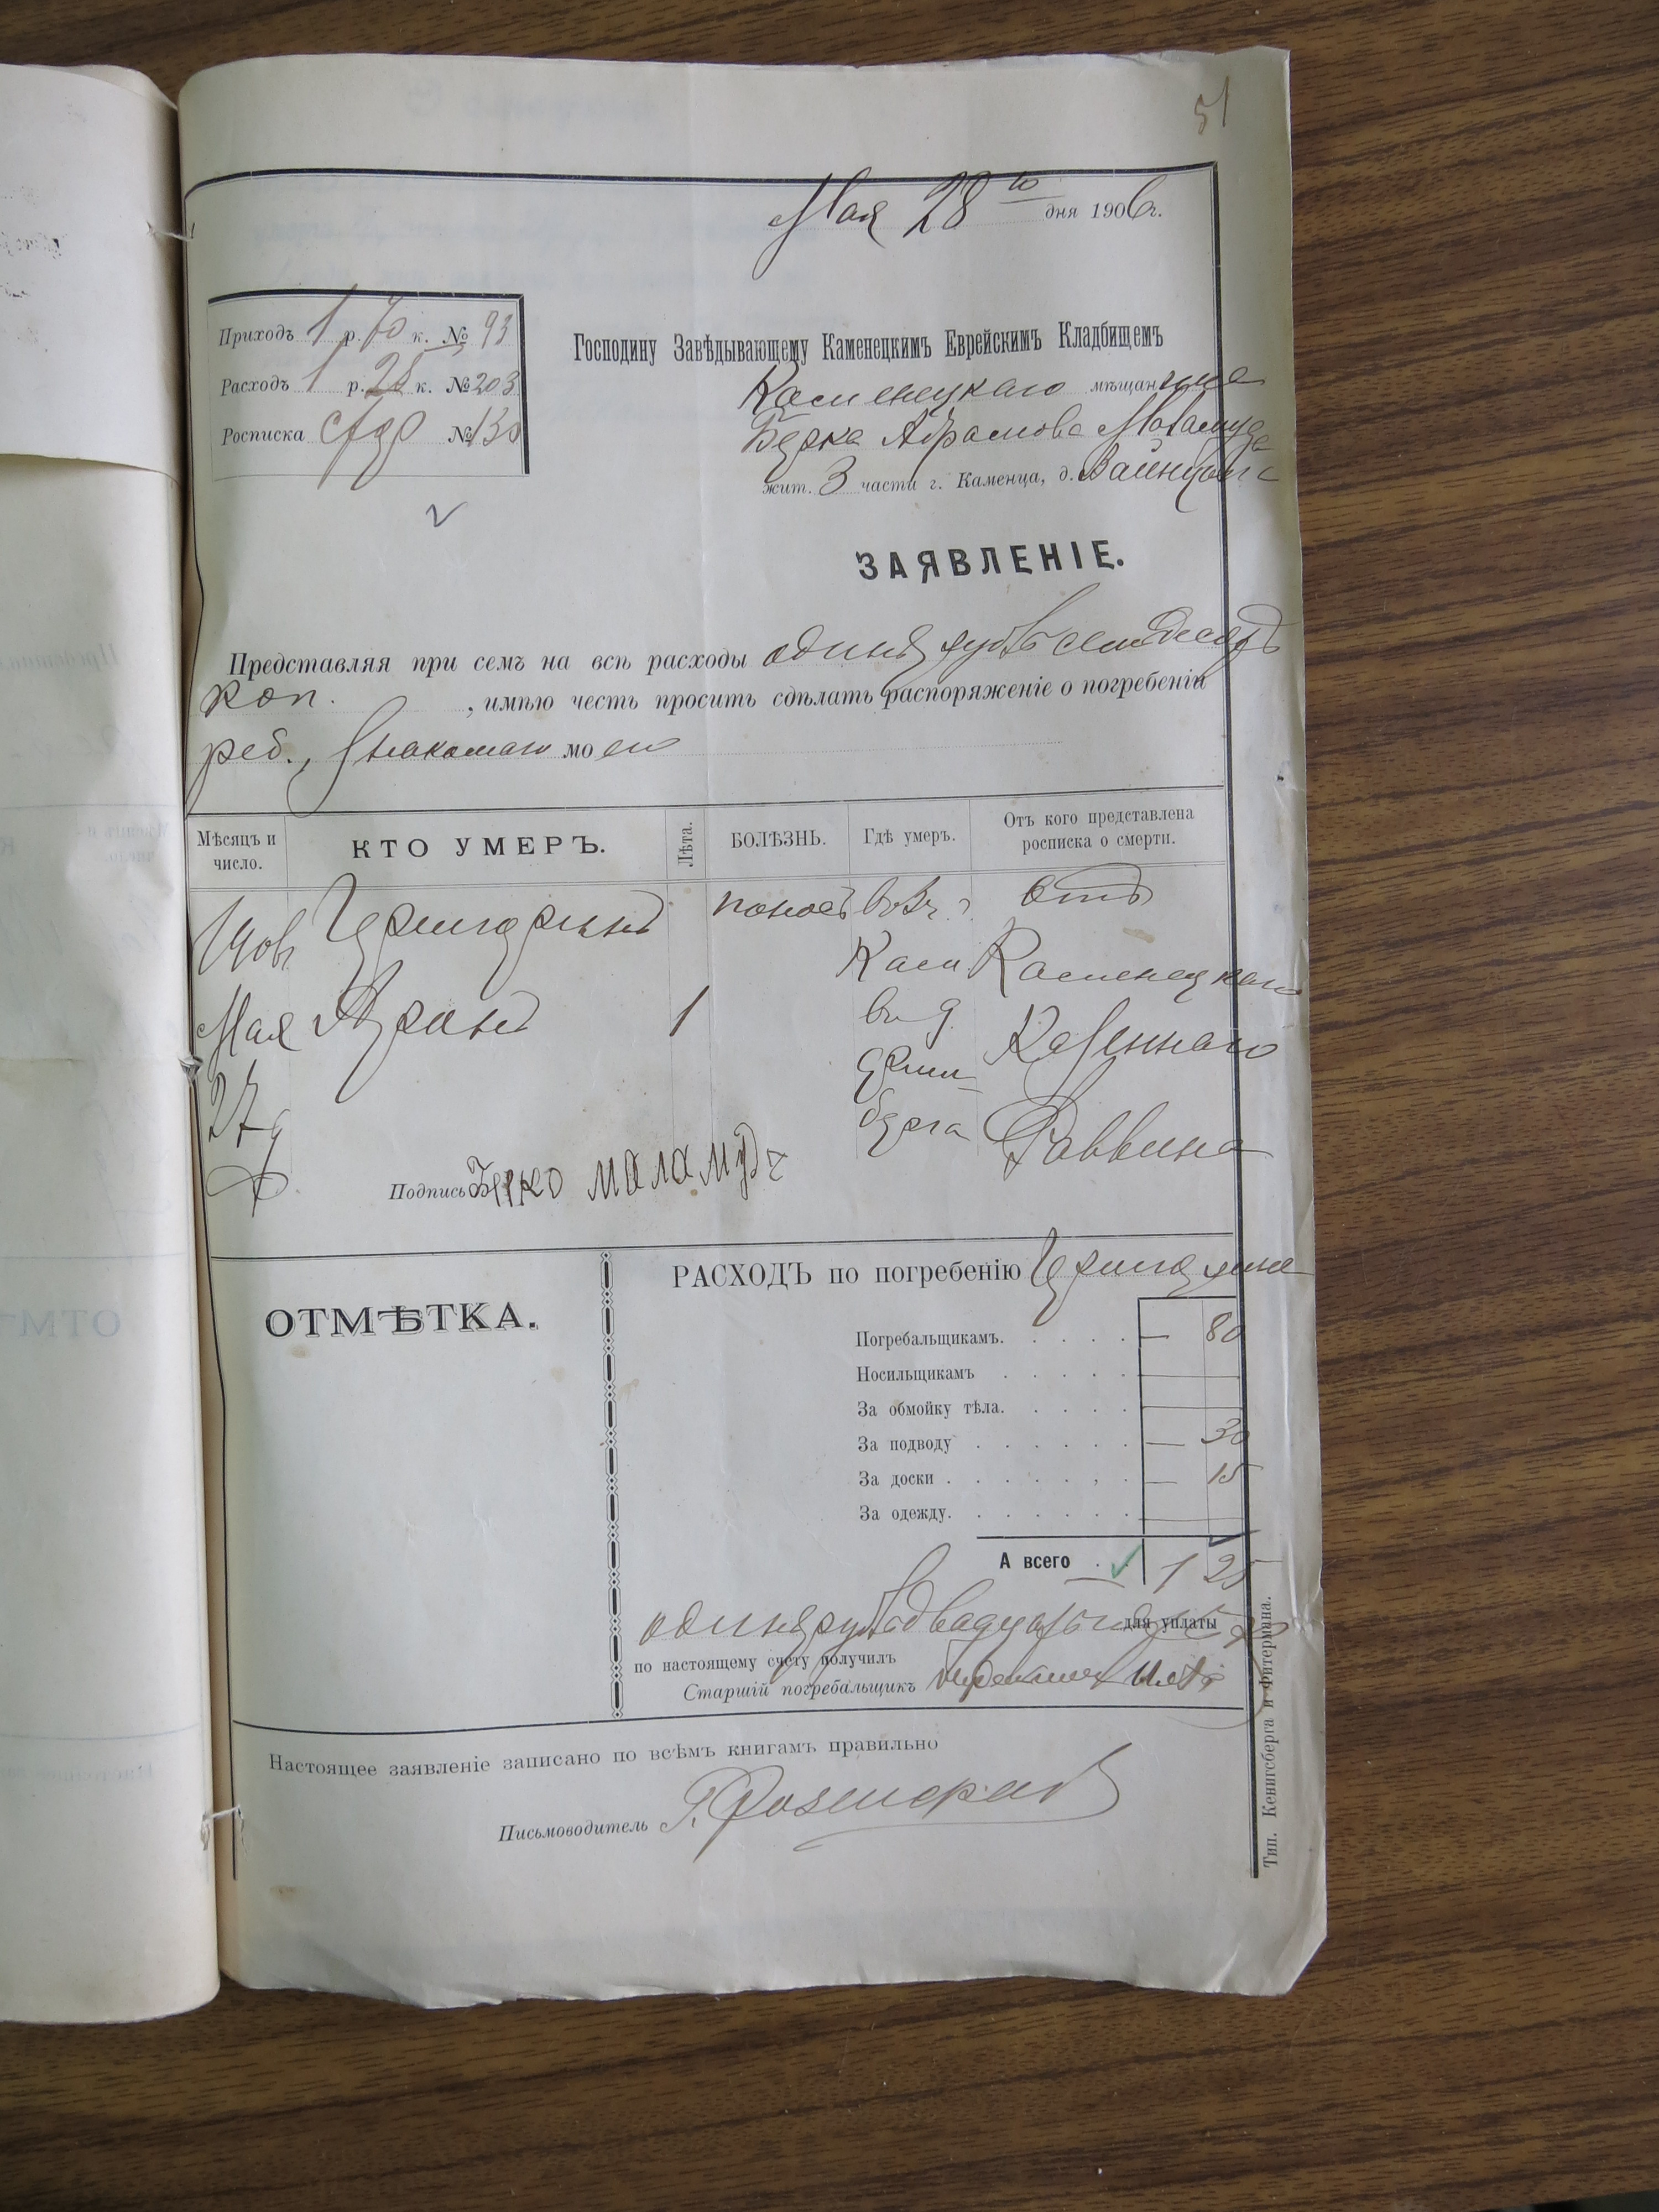 51
Мая 28 го дня 1906 г.
Приходъ 1 р. 70 к. № 93
Расходъ 1 р. 25 к. № 203
Росписка №130
Господину Завѣдывающему Каменецкимъ Еврейскимъ Кладбищемъ
Каменецкаго мѣщанина
Берка Абрамова Маламуда
жит. 3 части г. Каменца, д.
ЗАЯВЛЕНІЕ.
Представляя при семъ на всѣ расходы одинъ рубль семьдесятъ
коп. , имѣю честь просить сдѣлать распоряженіе о погребеніи
реб., знакомаго моего
Мѣсяцъ и число. КТО УМЕРЪ. Лѣта. БОЛѢЗНЬ. Гдѣ умеръ. Отъ кого представлена росписка о смерти.
поносъ отъ
Кам Каменецкаго
Мая 1 въ д. Казеннаго
27 Раввина
Подпись Берко маламудъ
ОТМѢТКА.
РАСХОДЪ по погребенію
Погребальщикамъ. — 80
Носильщикамъ
За обмойку тѣла.
За подводу — 30
За доски — 15
За одежду.
А всего 1 25
одинъ руб двадцать пять к для уплаты
по настоящему счету получилъ
Старшій погребальщикъ
Настоящее заявленіе записано по всѣмъ книгамъ правильно
Письмоводитель
Тип. Кенигсберга и Фитермана.